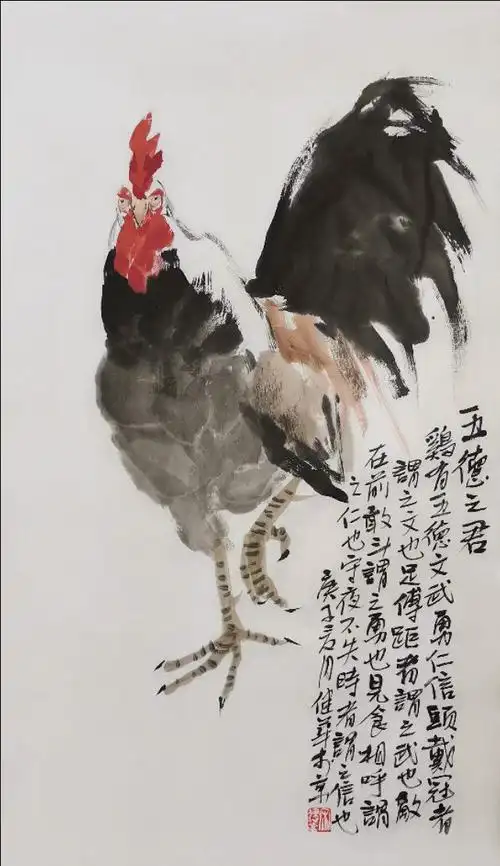 五德之君
鷄有五德文武勇仁信頭戴冠者
謂之文也足傅距者謂之武也敵
在前敢斗謂之勇也見食相呼謂
之仁也守夜不失時者謂之信也
庚子 月健華于京